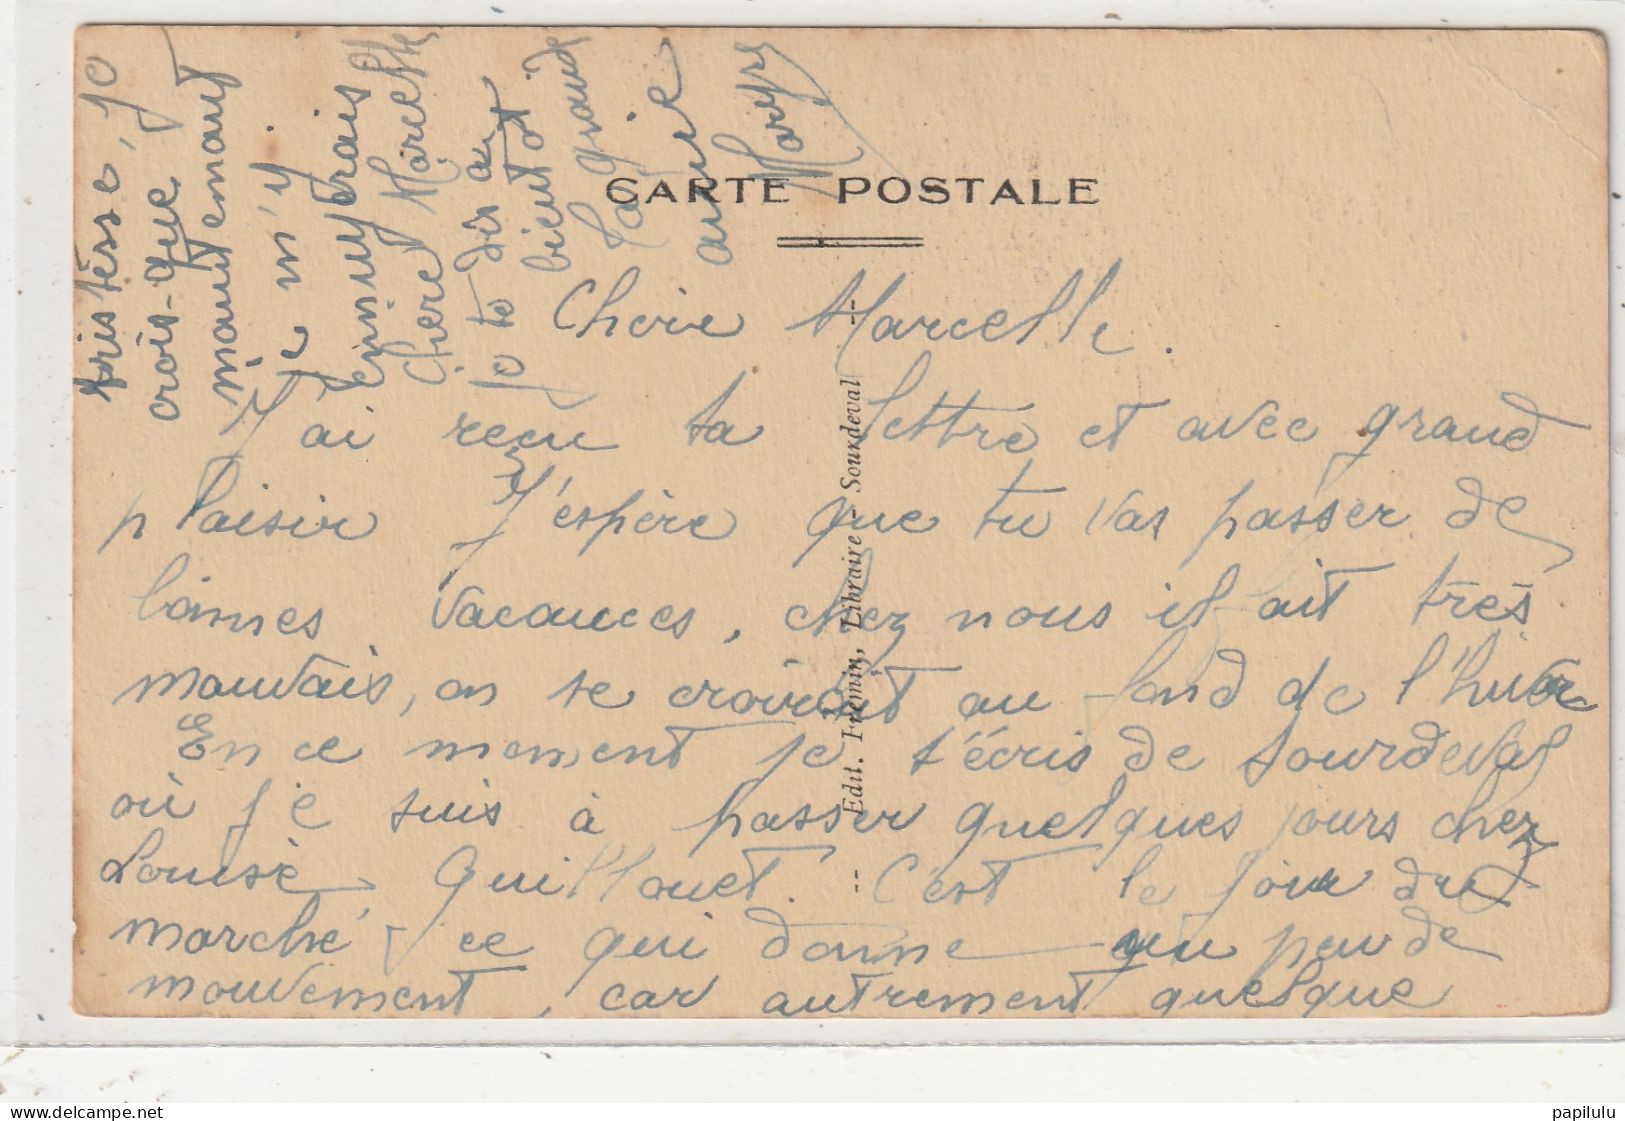 CARTE POSTALE
Chère Marcelle.
J'ai reçu ta lettre et avec grand
plaisir J'espère que tu vas passer de
bonnes vacances, chez nous il fait très
mauvais, on se croirait au fond de l'hiver
En ce moment je t'écris de Sourdeval
où je suis à passer quelques jours chez
Louise Quillouet. C'est le jour du
marché, ce qui donne un peu de
mouvement, car autrement quelque
tristesse, je
crois que
maintenant
je m'y
ennuyerais
chère Marcelle
je te dis au
bientôt.
Ta grande
amie
Edit. Frémin, Libraire - Sourdeval
delcampe.net
papilulu